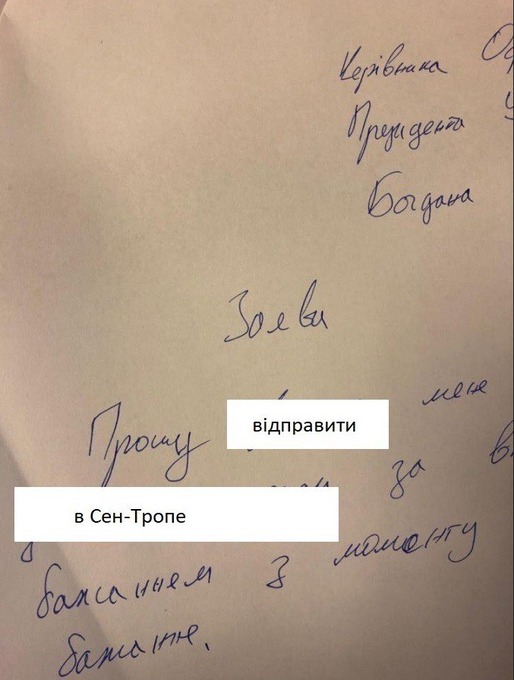 Керівника Оф
Президента У
Богдана
Заява
Прошу відправити мене
в Сен-Тропе за в
бажанням з моменту
бажання.